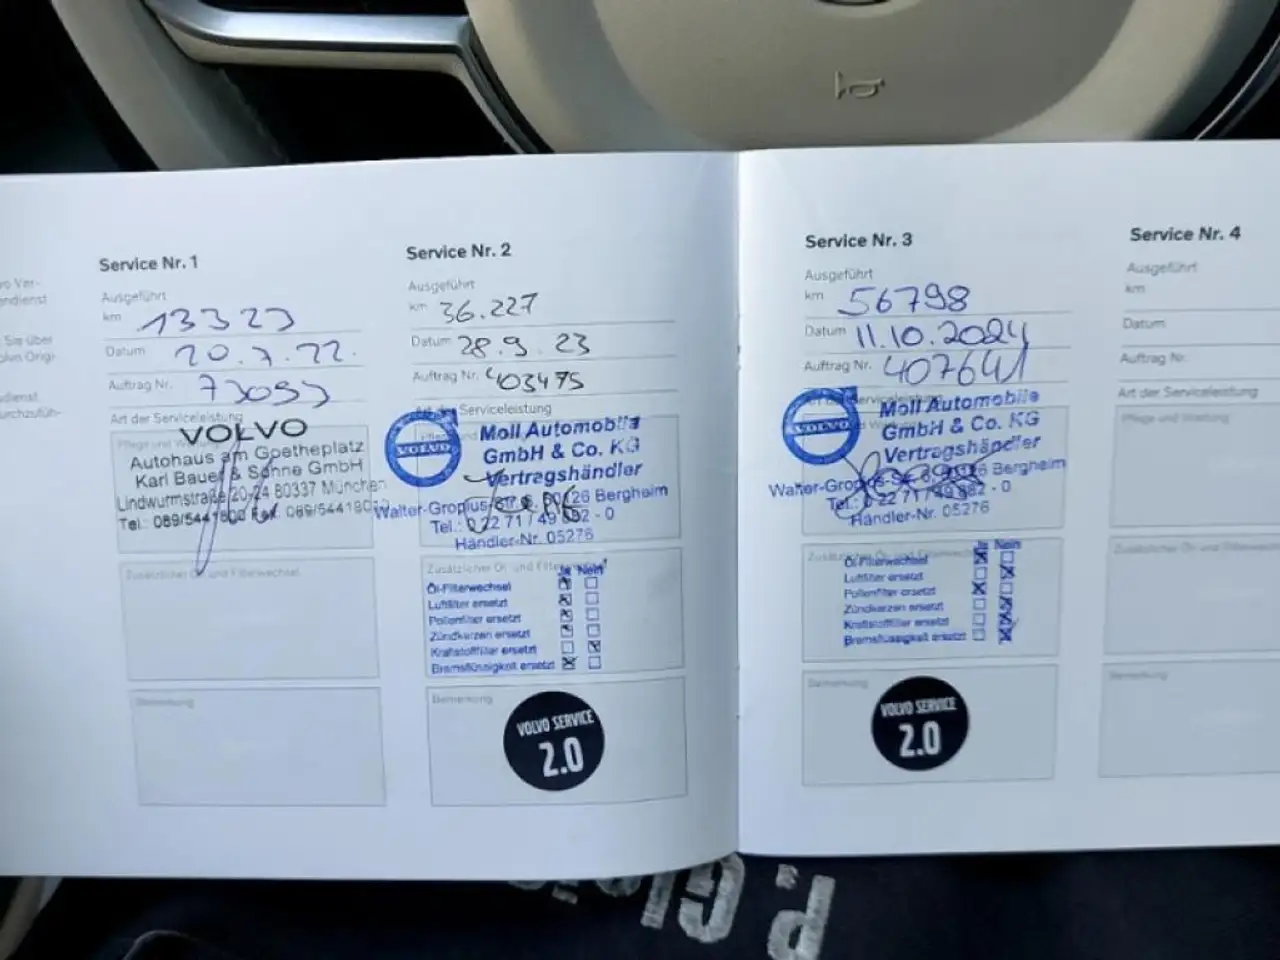 Service Nr. 1
Ausgeführt
km 13323
Datum 20.7.22.
Auftrag Nr. 73093
Art der Serviceleistung
Pflege und
VOLVO
Autohaus am Goetheplatz
Karl Bauer & Söhne GmbH
Lindwurmstraße 20-24 80337 München
Tel.: 089/5441800 Fax 089/544180
Zusätzlicher Öl- und Filterwechsel
Bemerkung
Service Nr. 2
Ausgeführt
km 36.227
Datum 28.9.23
Auftrag Nr. 403475
Art der Serviceleistung
VOLVO
Moll Automobile
GmbH & Co. KG
Vertragshändler
Walter-Gropius-Str. 6, 50126 Bergheim
Tel.: 0 22 71 / 49 882 - 0
Händler-Nr. 05276
Zusätzlicher Öl- und
Ja Nein
Öl-Filterwechsel
Luftfilter ersetzt
Pollenfilter ersetzt
Zündkerzen ersetzt
Kraftstofffilter ersetzt
Bremsflüssigkeit ersetzt
Bemerkung
VOLVO SERVICE
2.0
Service Nr. 3
Ausgeführt
km 56798
Datum 11.10.2024
Auftrag Nr. 407641
VOLVO
Moll Automobile
GmbH & Co. KG
Vertragshändler
Walter-Gropius-Str. 6, 50126 Bergheim
Tel.: 0 22 71 / 49 882 - 0
Händler-Nr. 05276
Zusätzlicher Öl- und
Ja Nein
Öl-Filterwechsel
Luftfilter ersetzt
Pollenfilter ersetzt
Zündkerzen ersetzt
Kraftstofffilter ersetzt
Bremsflüssigkeit ersetzt
Bemerkung
VOLVO SERVICE
2.0
Service Nr. 4
Ausgeführt
km
Datum
Auftrag Nr.
Art der Serviceleistung
Pflege und Wartung
Zusätzlicher Öl- und Filterwechsel
Bemerkung